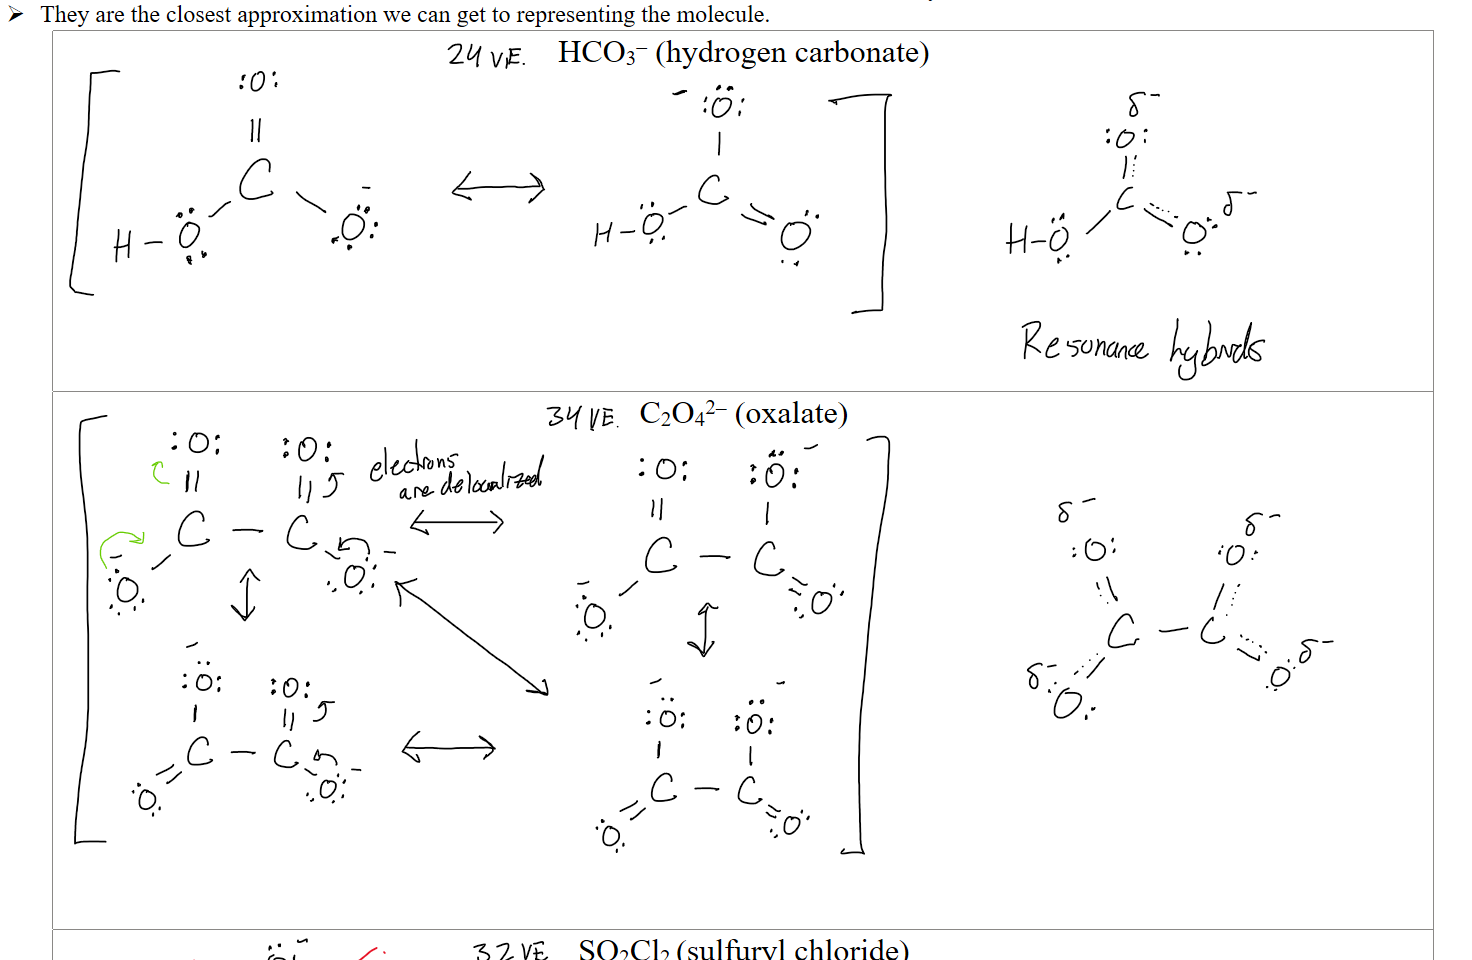 ➤ They are the closest approximation we can get to representing the molecule.
24 VE. HCO₃⁻ (hydrogen carbonate)
:O: ⁻ :O: δ⁻
|| | :O:
C ⟷ C C δ⁻
H-O O⁻ H-O O H-O O
Resonance hybrids
34 VE. C₂O₄²⁻ (oxalate)
:O: :O: electrons
are delocalized
:O: :O:⁻
|| || || |
C - C ⟷ C - C
⁻O O⁻ ⁻O O
↕ ↕
⁻ :O: :O: ⁻ :O: ⁻ :O:
| || | |
C - C ⟷ C - C
O O⁻ O O
δ⁻ δ⁻
:O: :O:
C - C
δ⁻ O O δ⁻
32 VE SO₂Cl₂ (sulfuryl chloride)